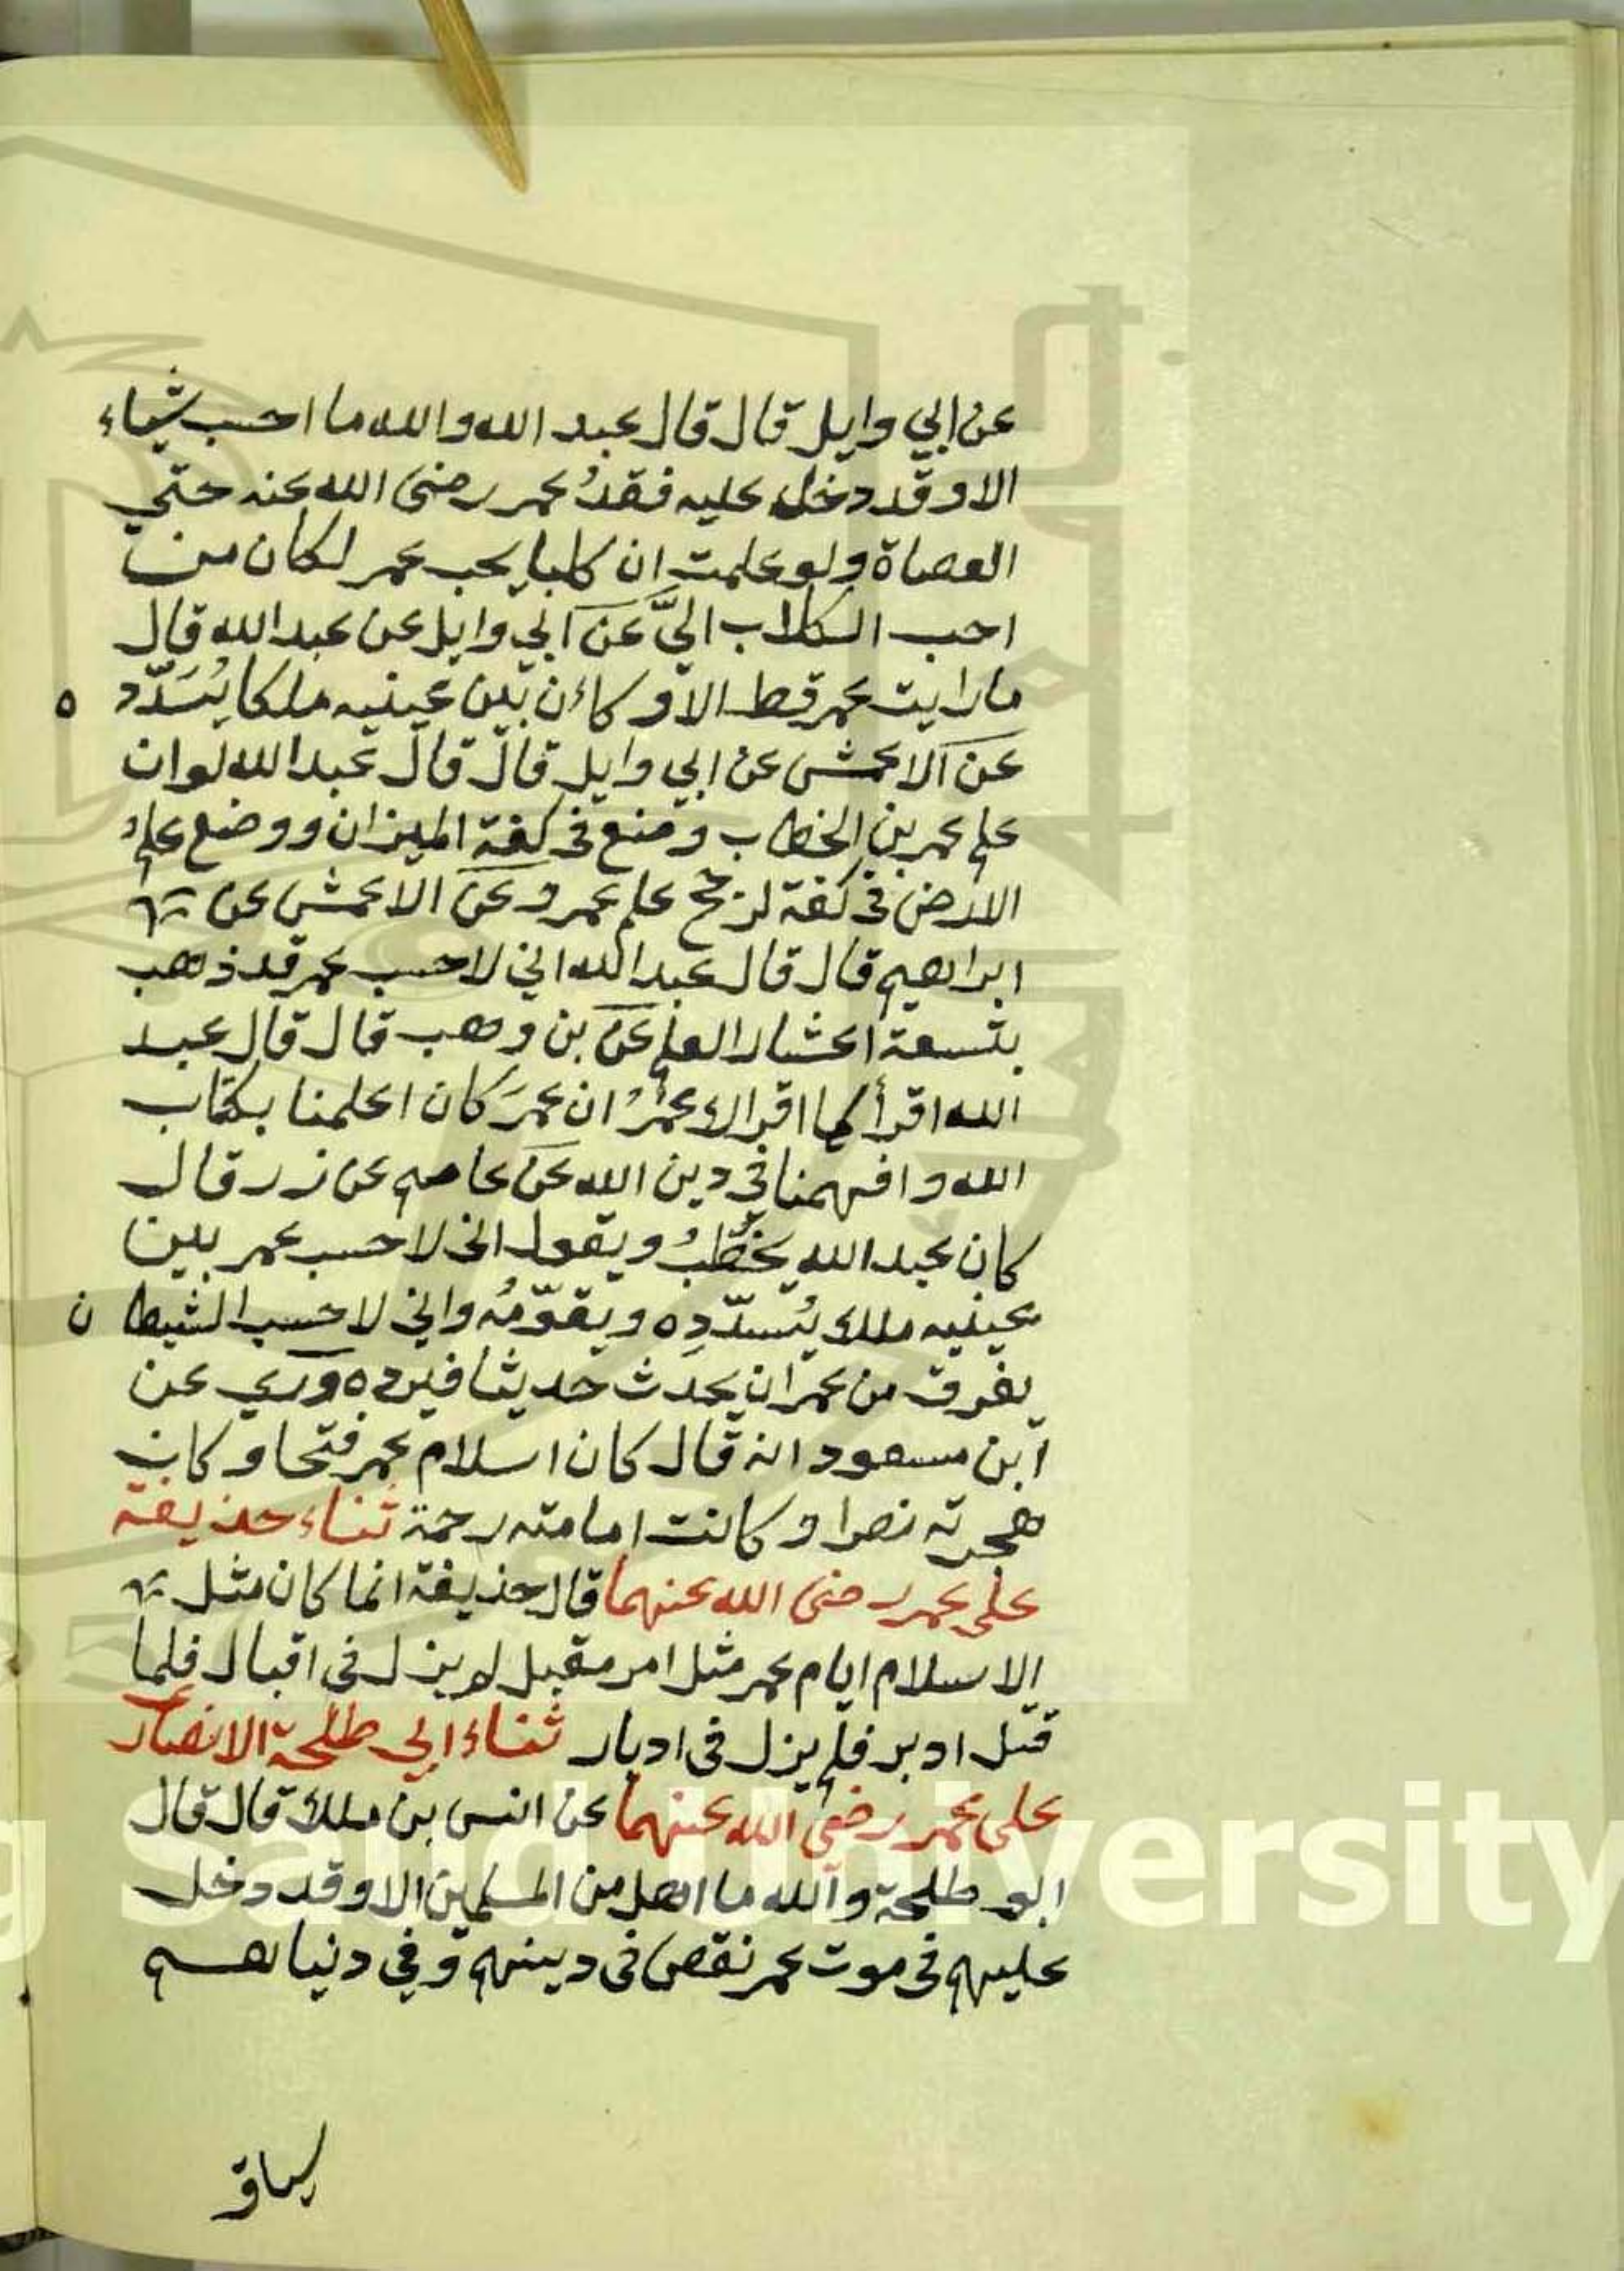 عن ابي وايل قال قال عبد الله والله ما احسب شياء
الا وقد دخل عليه فقدُ عمر رضى الله عنه حتي
العصاة ولو علمت ان كلبا يحب عمر لكان من
احب الكلاب اليَّ عن ابي وايل عن عبد الله قال
ما رايت عمر قط الا وكان بين عينيه ملكا يُسَدّد ه
عن الاعمش عن ابي وايل قال قال عبد الله لو ان
علم عمر بن الخطاب وضع فى كفة الميزان ووضع علم
الارض فى كفة لرجح علم عمر وعن الاعمش عن
ابراهيم قال قال عبد الله اني لاحسب عمر قد ذهب
بتسعة اعشار العلم عن بن وهب قال قال عبد
الله اقرأ كما اقرالا عمرُ ان عمرَ كان اعلمنا بكتاب
الله وافهمنا في دين الله عن عاصم عن زر قال
كان عبد الله يخطبُ ويقول انى لاحسب عمر بين
عينيه ملك يُسدّدِه ويقوّمُه واني لاحسب الشيطا ن
يفرق من عمر ان يحدث حديثا فيرده وروي عن
ابن مسعود انه قال كان اسلام عمر فتحا وكان
هجرته نصرا وكانت امامته رحمة ثناء حذيفة
على عمر رضى الله عنهما قال حذيفة انما كان مثل
الاسلام ايام عمر مثل امر مقبل لم يزل فى اقبال فلما
قتل ادبر فلم يزل فى ادبار ثناء ابي طلحة الانصار
على عمر رضى الله عنهما عن انس بن ملك قال قال
ابو طلحة والله ما اهل من المسلمين الا وقد دخل
عليهم فى موت عمر نقص فى دينهم وفي دنياهم
King Saud University